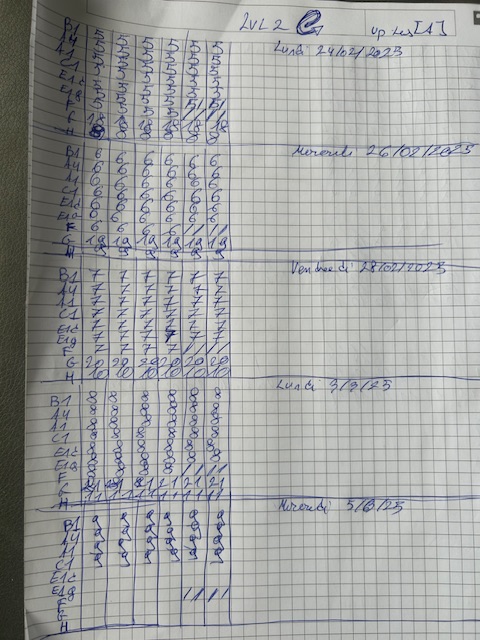 LVL 2
Lundi 24/02/2025
B1 5 5 5 5 5 5
A4 5 5 5 5 5 5
A1 5 5 5 5 5 5
C1 5 5 5 5 5 5
E1d 5 5 5 5 5 5
E1g 5 5 5 5 5 5
F 5 5 5 5 / /
G 18 18 18 18 18 18
H 8 8 8 8 8 8
Mercredi 26/02/2025
B1 6 6 6 6 6 6
A4 6 6 6 6 6 6
A1 6 6 6 6 6 6
C1 6 6 6 6 6 6
E1d 6 6 6 6 6 6
E1g 6 6 6 6 6 6
F 6 6 6 6 / /
G 19 19 19 19 19 19
H 9 9 9 9 9 9
Vendredi 28/02/2025
B1 7 7 7 7 7 7
A4 7 7 7 7 7 7
A1 7 7 7 7 7 7
C1 7 7 7 7 7 7
E1d 7 7 7 7 7 7
E1g 7 7 7 7 7 7
F 7 7 7 7 / /
G 20 20 20 20 20 20
H 10 10 10 10 10 10
Lundi 3/3/25
B1 8 8 8 8 8 8
A4 8 8 8 8 8 8
A1 8 8 8 8 8 8
C1 8 8 8 8 8 8
E1d 8 8 8 8 8 8
E1g 8 8 8 8 8 8
F 8 8 8 8 / /
G 21 21 21 21 21 21
H 11 11 11 11 11 11
Mercredi
B1 9 9 9 9 9 9
A4 9 9 9 9 9 9
A1 9 9 9 9 9 9
C1 9 9 9 9 9 9
E1d
E1g
F / /
G
H